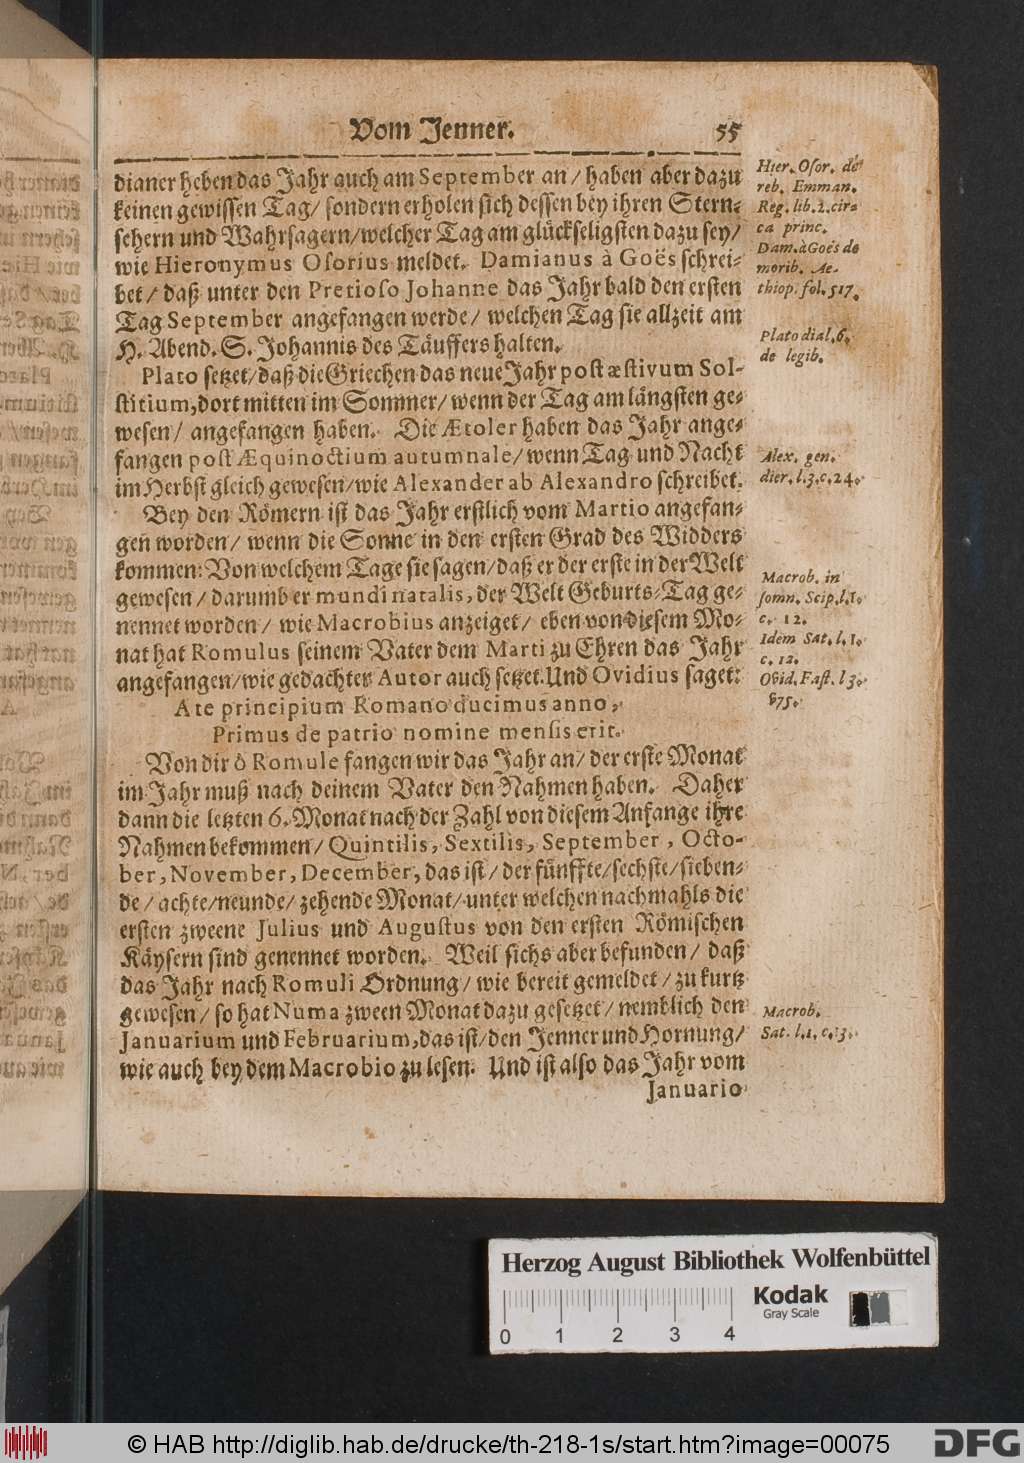 Vom Jenner. 55
dianer heben das Jahr auch am September an / haben aber dazu
keinen gewissen Tag / sondern erholen sich dessen bey ihren Stern-
sehern und Wahrsagern / welcher Tag am glückseligsten dazu sey /
wie Hieronymus Osorius meldet. Damianus à Goës schrei-
bet / daß unter den Pretioso Johanne das Jahr bald den ersten
Tag September angefangen werde / welchen Tag sie allzeit am
H. Abend. S. Johannis des Täuffers halten.
Plato setzet / daß die Griechen das neue Jahr post æstivum Sol-
stitium, dort mitten im Sommer / wenn der Tag am längsten ge-
wesen / angefangen haben. Die Ætoler haben das Jahr ange-
fangen post Æquinoctium autumnale / wenn Tag und Nacht
im Herbst gleich gewesen / wie Alexander ab Alexandro schreibet.
Bey den Römern ist das Jahr erstlich vom Martio angefan-
gen worden / wenn die Sonne in den ersten Grad des Widders
kommen: Von welchem Tage sie sagen / daß er der erste in der Welt
gewesen / darumb er mundi natalis, der Welt Geburts-Tag ge-
nennet worden / wie Macrobius anzeiget / eben von diesem Mo-
nat hat Romulus seinem Vater dem Marti zu Ehren das Jahr
angefangen / wie gedachter Autor auch setzet. Und Ovidius saget:
A te principium Romano ducimus anno,
Primus de patrio nomine mensis erit.
Von dir ô Romule fangen wir das Jahr an / der erste Monat
im Jahr muß nach deinem Vater den Nahmen haben. Daher
dann die letzten 6. Monat nach der Zahl von diesem Anfange ihre
Nahmen bekommen / Quintilis, Sextilis, September, Octo-
ber, November, December, das ist / der fünffte / sechste / sieben-
de / achte / neunde / zehende Monat / unter welchen nachmahls die
ersten zweene Julius und Augustus von den ersten Römischen
Käysern sind genennet worden. Weil sichs aber befunden / daß
das Jahr nach Romuli Ordnung / wie bereit gemeldet / zu kurtz
gewesen / so hat Numa zween Monat dazu gesetzet / nemblich den
Januarium und Februarium, das ist / den Jenner und Hornung /
wie auch bey dem Macrobio zu lesen. Und ist also das Jahr vom
Januario
Hier. Osor. de
reb. Emman.
Reg. lib. 2. cir-
ca princ.
Dam. à Goës de
morib. Ae-
thiop. fol. 517.
Plato dial. 6.
de legib.
Alex. gen.
dier. l. 3. c. 24.
Macrob. in
somn. Scip. l. 1.
c. 12.
Idem Sat. l. 1.
c. 12.
Ovid. Fast. l 3.
v 75.
Macrob.
Sat. l. 1. c. 13.
Herzog August Bibliothek Wolfenbüttel
Kodak
Gray Scale
0 1 2 3 4
© HAB http://diglib.hab.de/drucke/th-218-1s/start.htm?image=00075
DFG